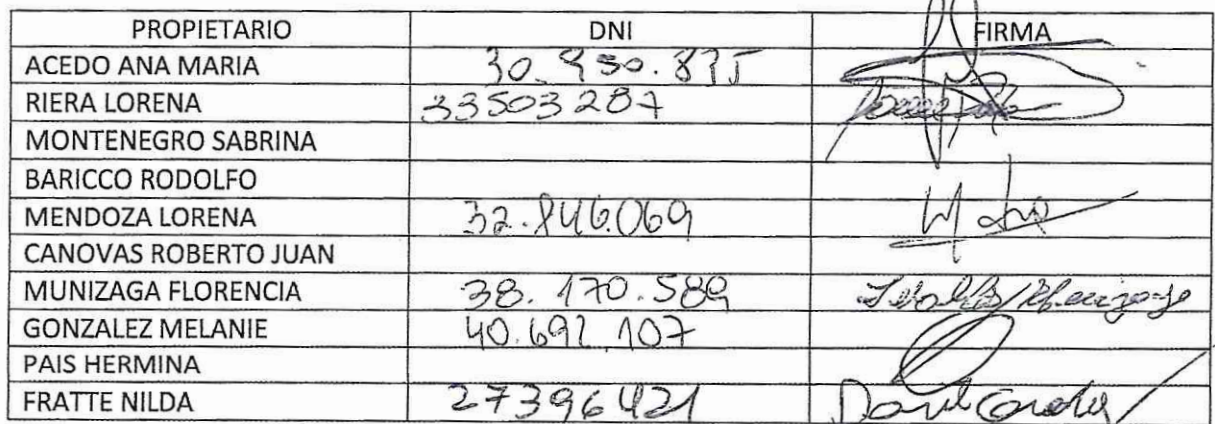 PROPIETARIO DNI FIRMA
ACEDO ANA MARIA 30.950.835
RIERA LORENA 33503287
MONTENEGRO SABRINA
BARICCO RODOLFO
MENDOZA LORENA 32.846.069
CANOVAS ROBERTO JUAN
MUNIZAGA FLORENCIA 38.170.589
GONZALEZ MELANIE 40.692.107
PAIS HERMINA
FRATTE NILDA 27396421